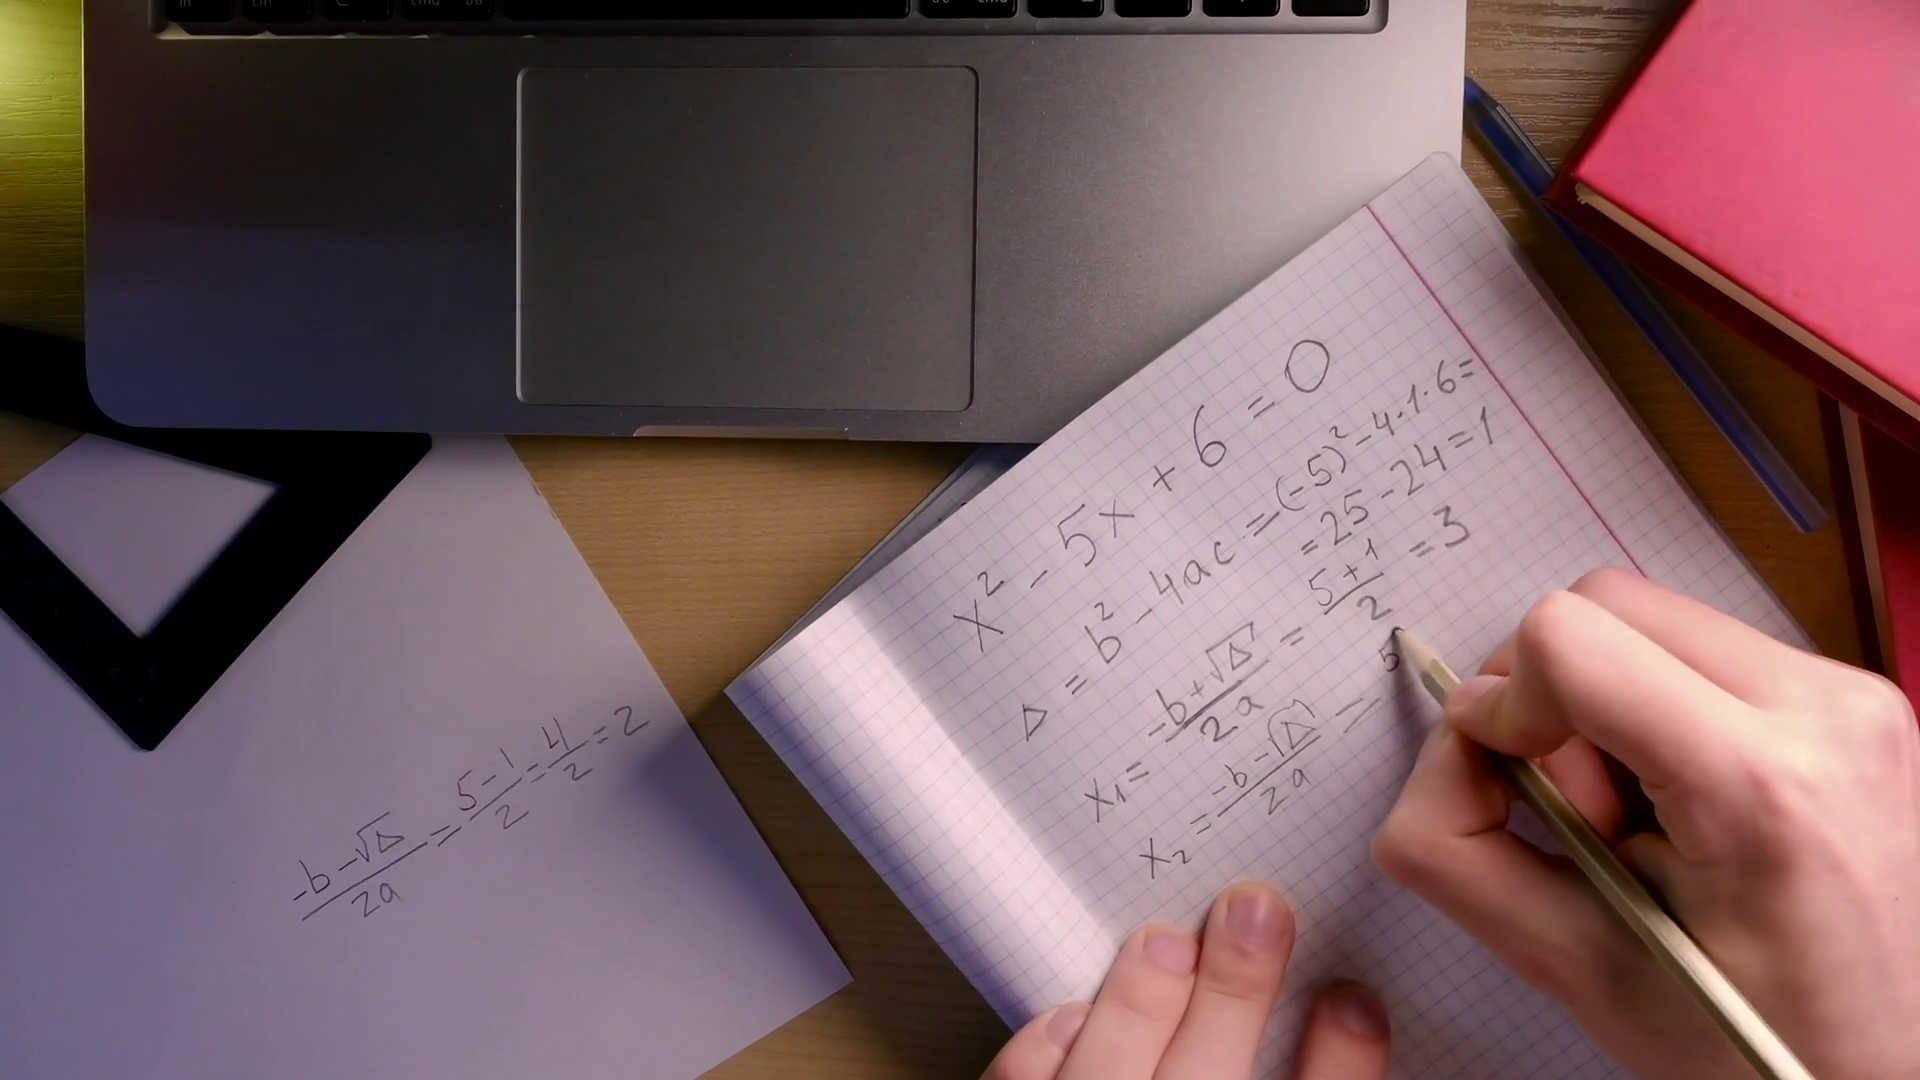 cmd ⌘ ⌘ cmd
x² - 5x + 6 = 0
Δ = b² - 4ac = (-5)² - 4·1·6 =
= 25 - 24 = 1
x₁ = (-b + √Δ)/2a = (5 + 1)/2 = 3
x₂ = (-b - √Δ)/2a = 5
(-b - √Δ)/2a = (5 - 1)/2 = 4/2 = 2